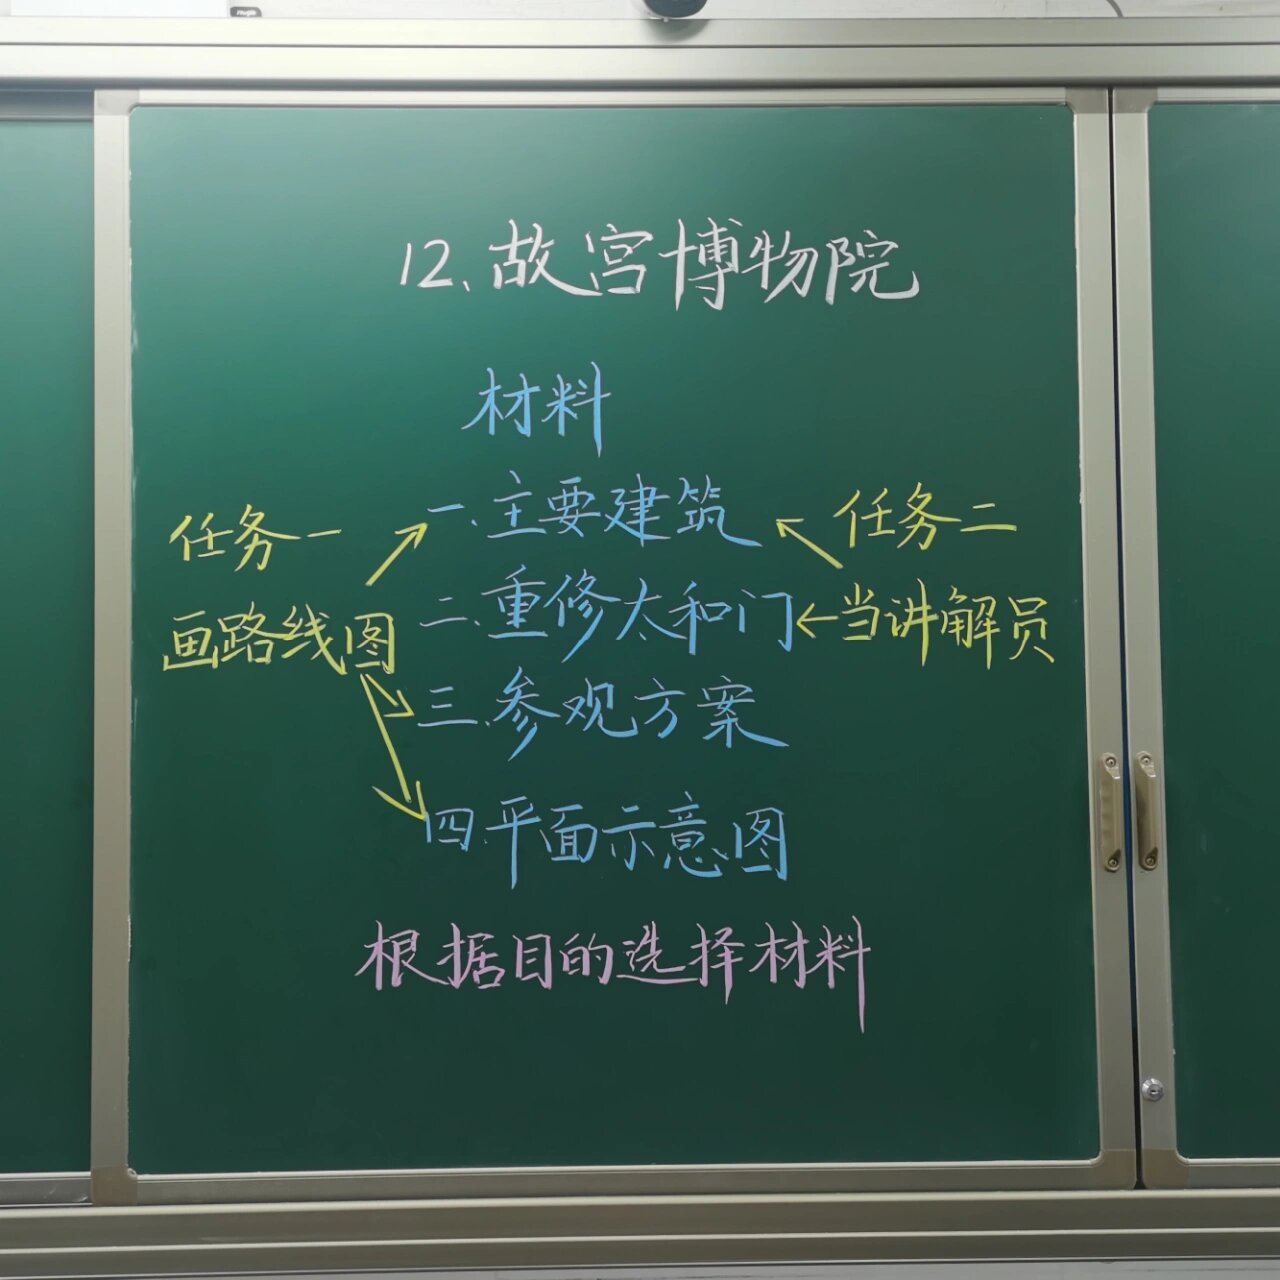 12、故宫博物院
材料
任务一
画路线图
一、主要建筑
二、重修太和门
三、参观方案
四、平面示意图
任务二
当讲解员
根据目的选择材料